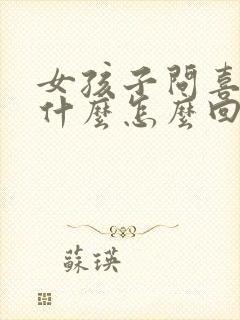 女孩子問喜
什麼怎麼回
蘇瑛